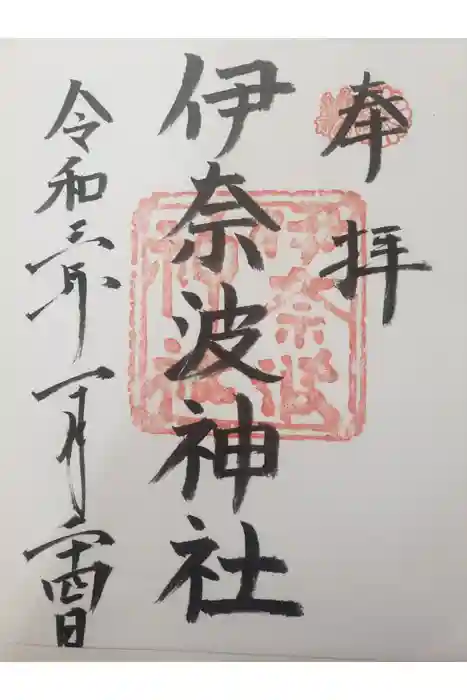 奉拝
伊奈波神社
令和三年一月二十四日